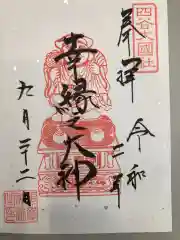 四谷大國社
奉拝
令和
二年
幸縁之大神
九月二十二日